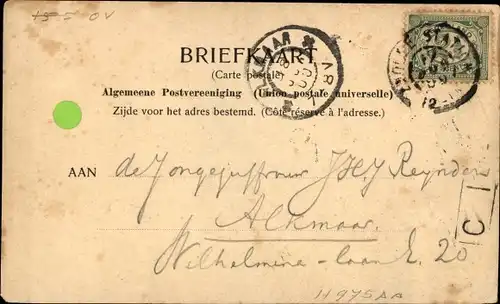 15 = OV
BRIEFKAART
(Carte postale)
Algemeene Postvereeniging (Union postale universelle)
Zijde voor het adres bestemd. (Côté réservé à l'adresse.)
AAN de Jongejuffrouw J.H.J. Reynders
Alkmaar.
Wilhelmina-laan E. 20
H 975 AA
C